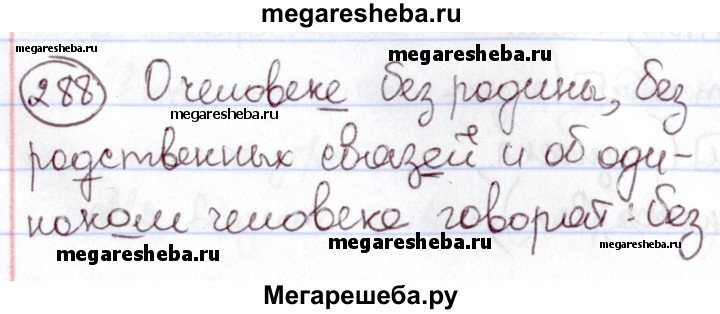 megaresheba.ru
megaresheba.ru
megaresheba.ru
288 О человеке без родины, без
megaresheba.ru
родственных связей и об оди-
ноком человеке говорят: без
megaresheba.ru
megaresheba.ru
megaresheba.ru
Мегарешеба.ру